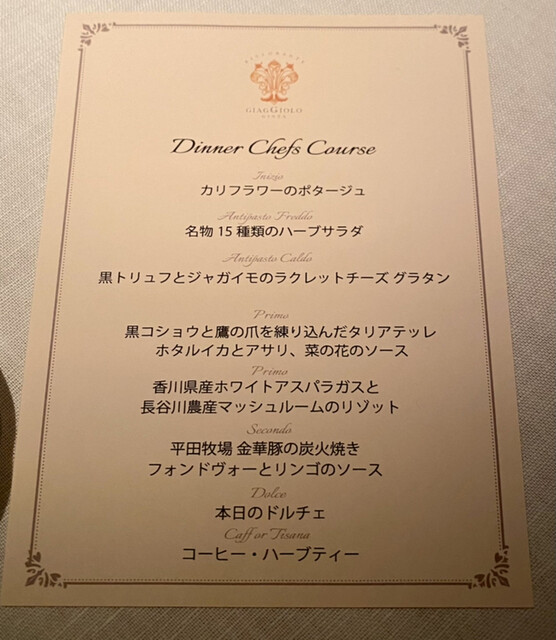 RISTORANTE
GIAGGIOLO
GINZA
Dinner Chefs Course
Inizio
カリフラワーのポタージュ
Antipasto Freddo
名物 15 種類のハーブサラダ
Antipasto Caldo
黒トリュフとジャガイモのラクレットチーズ グラタン
Primo
黒コショウと鷹の爪を練り込んだタリアテッレ
ホタルイカとアサリ、菜の花のソース
Primo
香川県産ホワイトアスパラガスと
長谷川農産マッシュルームのリゾット
Secondo
平田牧場 金華豚の炭火焼き
フォンドヴォーとリンゴのソース
Dolce
本日のドルチェ
Caff or Tisana
コーヒー・ハーブティー